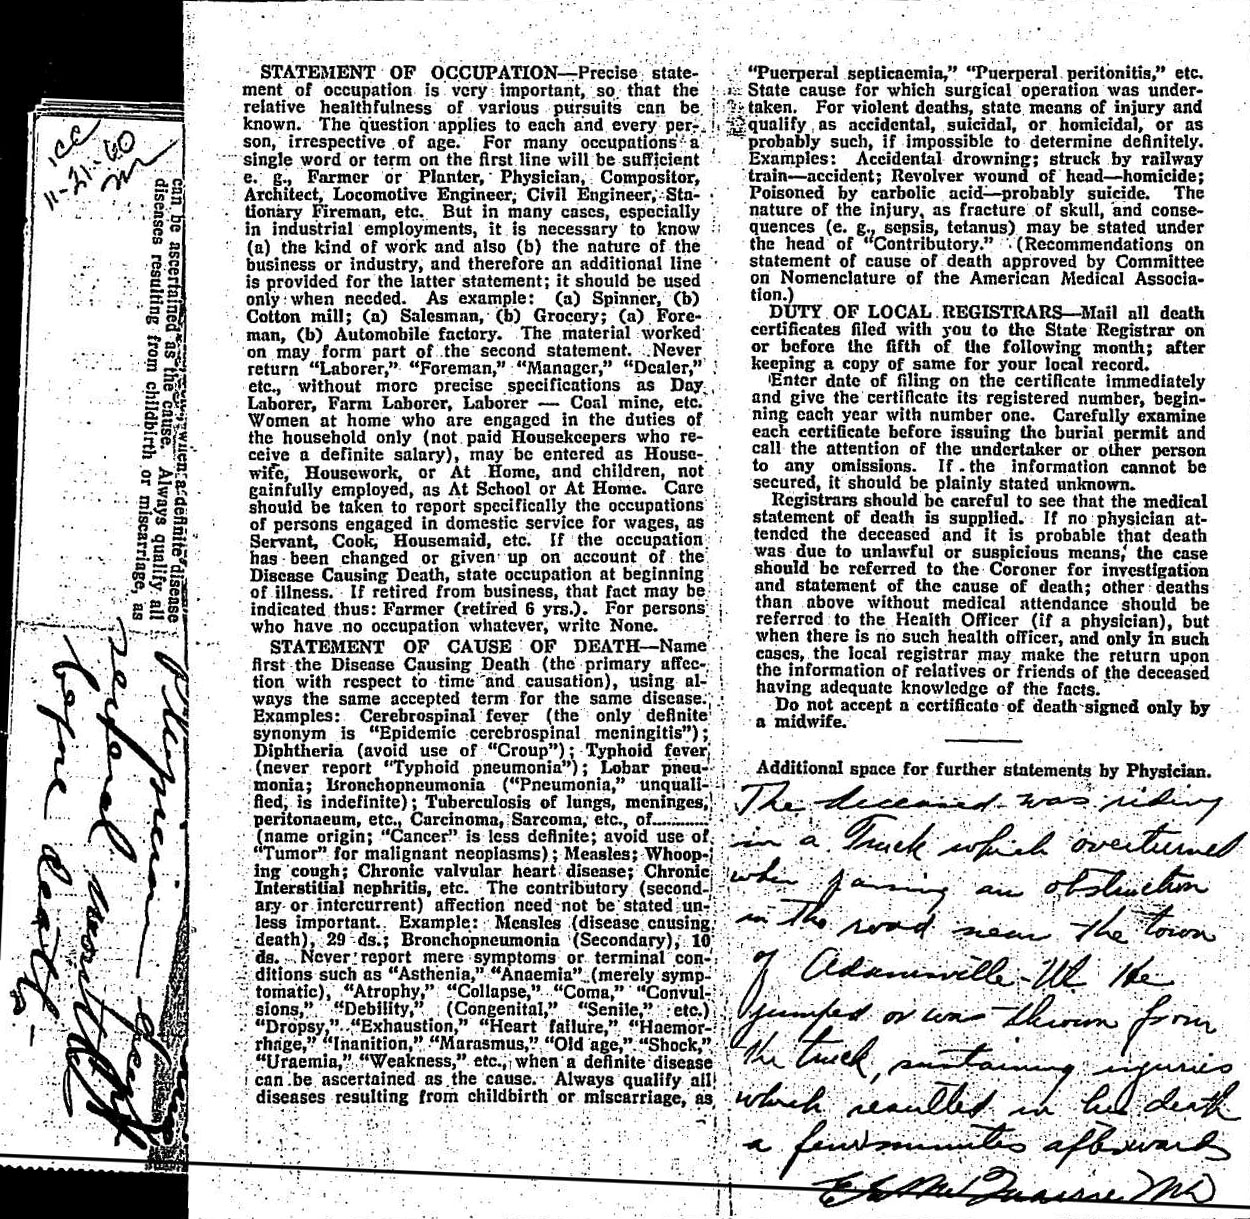 11-21-60
can be ascertained as the cause. Always qualify all
diseases resulting from childbirth or miscarriage, as
before death
STATEMENT OF OCCUPATION—Precise state-
ment of occupation is very important, so that the
relative healthfulness of various pursuits can be
known. The question applies to each and every per-
son, irrespective of age. For many occupations a
single word or term on the first line will be sufficient
e. g., Farmer or Planter, Physician, Compositor,
Architect, Locomotive Engineer, Civil Engineer, Sta-
tionary Fireman, etc. But in many cases, especially
in industrial employments, it is necessary to know
(a) the kind of work and also (b) the nature of the
business or industry, and therefore an additional line
is provided for the latter statement; it should be used
only when needed. As example: (a) Spinner, (b)
Cotton mill; (a) Salesman, (b) Grocery; (a) Fore-
man, (b) Automobile factory. The material worked
on may form part of the second statement. Never
return "Laborer," "Foreman," "Manager," "Dealer,"
etc., without more precise specifications as Day
Laborer, Farm Laborer, Laborer — Coal mine, etc.
Women at home who are engaged in the duties of
the household only (not paid Housekeepers who re-
ceive a definite salary), may be entered as House-
wife, Housework, or At Home, and children, not
gainfully employed, as At School or At Home. Care
should be taken to report specifically the occupations
of persons engaged in domestic service for wages, as
Servant, Cook, Housemaid, etc. If the occupation
has been changed or given up on account of the
Disease Causing Death, state occupation at beginning
of illness. If retired from business, that fact may be
indicated thus: Farmer (retired 6 yrs.). For persons
who have no occupation whatever, write None.
STATEMENT OF CAUSE OF DEATH—Name
first the Disease Causing Death (the primary affec-
tion with respect to time and causation), using al-
ways the same accepted term for the same disease.
Examples: Cerebrospinal fever (the only definite
synonym is "Epidemic cerebrospinal meningitis");
Diphtheria (avoid use of "Croup"); Typhoid fever
(never report "Typhoid pneumonia"); Lobar pneu-
monia; Bronchopneumonia ("Pneumonia," unquali-
fied, is indefinite); Tuberculosis of lungs, meninges,
peritonaeum, etc., Carcinoma, Sarcoma, etc., of............
(name origin; "Cancer" is less definite; avoid use of
"Tumor" for malignant neoplasms); Measles; Whoop-
ing cough; Chronic valvular heart disease; Chronic
Interstitial nephritis, etc. The contributory (second-
ary or intercurrent) affection need not be stated un-
less important. Example: Measles (disease causing
death), 29 ds.; Bronchopneumonia (Secondary), 10
ds. Never report mere symptoms or terminal con-
ditions such as "Asthenia," "Anaemia" (merely symp-
tomatic), "Atrophy," "Collapse," "Coma," "Convul-
sions," "Debility," (Congenital," "Senile," etc.)
"Dropsy," "Exhaustion," "Heart failure," "Haemor-
rhage," "Inanition," "Marasmus," "Old age," "Shock,"
"Uraemia," "Weakness," etc., when a definite disease
can be ascertained as the cause. Always qualify all
diseases resulting from childbirth or miscarriage, as
"Puerperal septicaemia," "Puerperal peritonitis," etc.
State cause for which surgical operation was under-
taken. For violent deaths, state means of injury and
qualify as accidental, suicidal, or homicidal, or as
probably such, if impossible to determine definitely.
Examples: Accidental drowning; struck by railway
train—accident; Revolver wound of head—homicide;
Poisoned by carbolic acid—probably suicide. The
nature of the injury, as fracture of skull, and conse-
quences (e. g., sepsis, tetanus) may be stated under
the head of "Contributory." (Recommendations on
statement of cause of death approved by Committee
on Nomenclature of the American Medical Associa-
tion.)
DUTY OF LOCAL REGISTRARS—Mail all death
certificates filed with you to the State Registrar on
or before the fifth of the following month; after
keeping a copy of same for your local record.
Enter date of filing on the certificate immediately
and give the certificate its registered number, begin-
ning each year with number one. Carefully examine
each certificate before issuing the burial permit and
call the attention of the undertaker or other person
to any omissions. If the information cannot be
secured, it should be plainly stated unknown.
Registrars should be careful to see that the medical
statement of death is supplied. If no physician at-
tended the deceased and it is probable that death
was due to unlawful or suspicious means, the case
should be referred to the Coroner for investigation
and statement of the cause of death; other deaths
than above without medical attendance should be
referred to the Health Officer (if a physician), but
when there is no such health officer, and only in such
cases, the local registrar may make the return upon
the information of relatives or friends of the deceased
having adequate knowledge of the facts.
Do not accept a certificate of death signed only by
a midwife.
Additional space for further statements by Physician.
The deceased was riding
in a Truck which overturned
when passing an obstruction
in the road near the town
of Adamsville-Ut. He
jumped or was thrown from
the truck, sustaining injuries
which resulted in his death
a few minutes afterwards